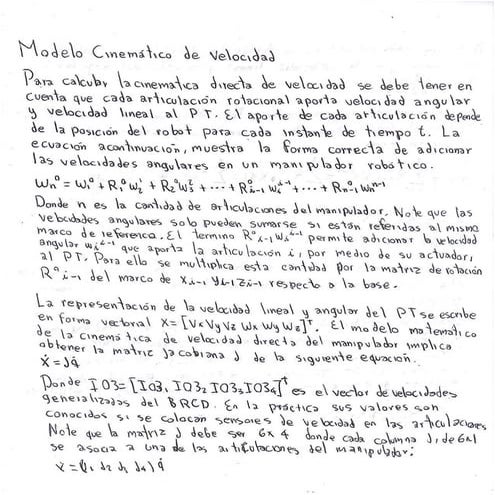 Modelo Cinemático de Velocidad
Para calcular la cinematica directa de velocidad se debe tener en
cuenta que cada articulación rotacional aporta velocidad angular
y velocidad lineal al PT. El aporte de cada articulación depende
de la posición del robot para cada instante de tiempo t. La
ecuación acontinuación, muestra la forma correcta de adicionar
las velocidades angulares en un manipulador robótico.
Wn⁰ = W₁⁰ + R₁⁰W₂¹ + R₂⁰W₃² + ··· + R⁰i-1 Wi^i-1 + ··· + R⁰n-1 Wn^n-1
Donde n es la cantidad de articulaciones del manipulador. Note que las
velocidades angulares solo pueden sumarse si están referidas al mismo
marco de referencia. El termino R⁰i-1 Wi^i-1 permite adicionar la velocidad
angular Wi^i-1 que aporta la articulación i, por medio de su actuador,
al PT. Para ello se multiplica esta cantidad por la matriz de rotación
R⁰i-1 del marco de Xi-1 Yi-1 Zi-1 respecto a la base.
La representación de la velocidad lineal y angular del PT se escribe
en forma vectoral X = [Vx Vy Vz Wx Wy Wz]ᵀ. El modelo matemático
de la cinemática de velocidad directa del manipulador implica
obtener la matriz jacobiana J de la siguiente ecuación.
Ẋ = Jq̇
Donde IO3 = [IO3, IO3, IO3, IO34]ᵀ es el vector de velocidades
generalizadas del BRCD. En la práctica sus valores son
conocidos si se colocan sensores de velocidad en las articulaciones
Note que la matriz J debe ser 6x4 donde cada columna J, de 6x1
se asocia a una de las articulaciones del manipulador: